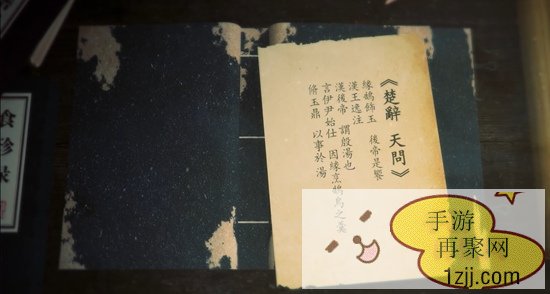 《楚辭 天問》
緣鵠飾玉 後帝是饗
漢王逸注
漢後帝 謂殷湯也
言伊尹始仕 因緣烹鵠鳥之羹
脩玉鼎 以事於湯
食珍录
手游
再聚网
1zjj.com